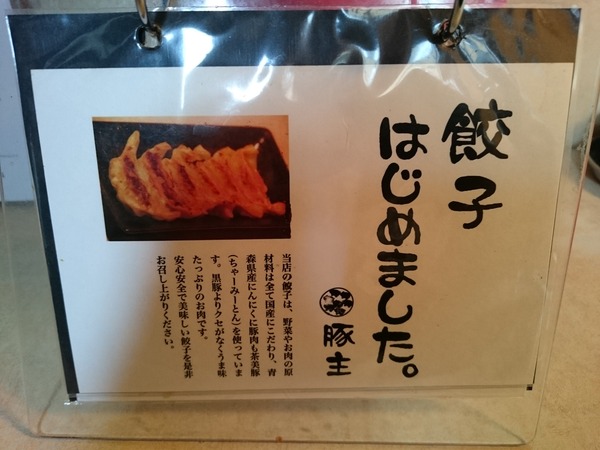 餃子
はじめました。
豚主
当店の餃子は、野菜やお肉の原
材料は全て国産にこだわり、青
森県産にんにくに豚肉も茶美豚
(ちゃーみーとん)を使っていま
す。黒豚よりクセがなくうま味
たっぷりのお肉です。
安心安全で美味しい餃子を是非
お召し上がりください。